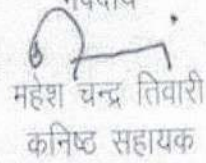 भवदीय
महेश चन्द्र तिवारी
कनिष्ठ सहायक